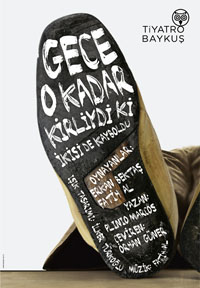 TiYATRO
BAYKUŞ
GECE
O KADAR
KiRLiYDi Ki
iKiSi DE KAYBOLDU
OYNAYANLAR:
ERKAN BEKTAŞ
FATiH AL
YAZAN:
PLiNIO MARCOS
ÇEViREN:
ORHAN GÜNER
IŞIK TASARIMI:
MÜZiK: